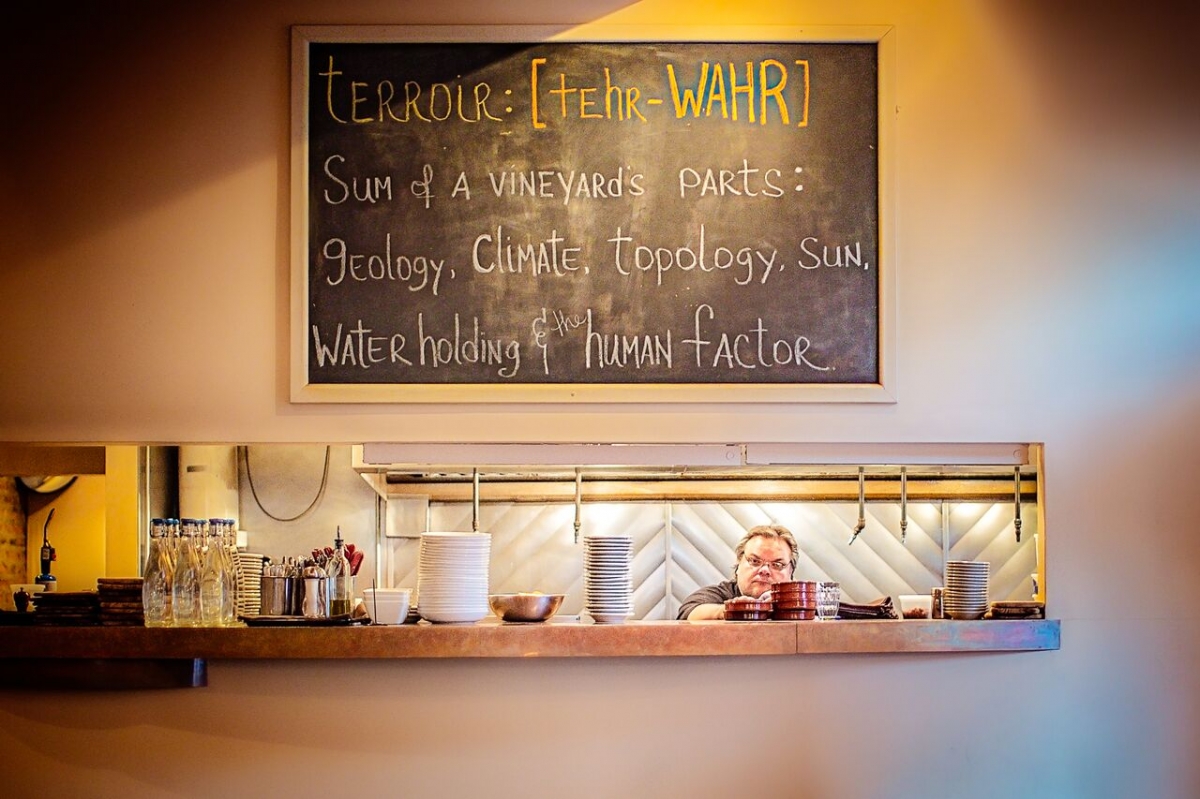 tERROIR: [tEhR-WAHR]
Sum of A VINEYARd's PARTS:
gEology, CliMATE, topology, SUN,
WATER holding & the hUMAN fACTOR.